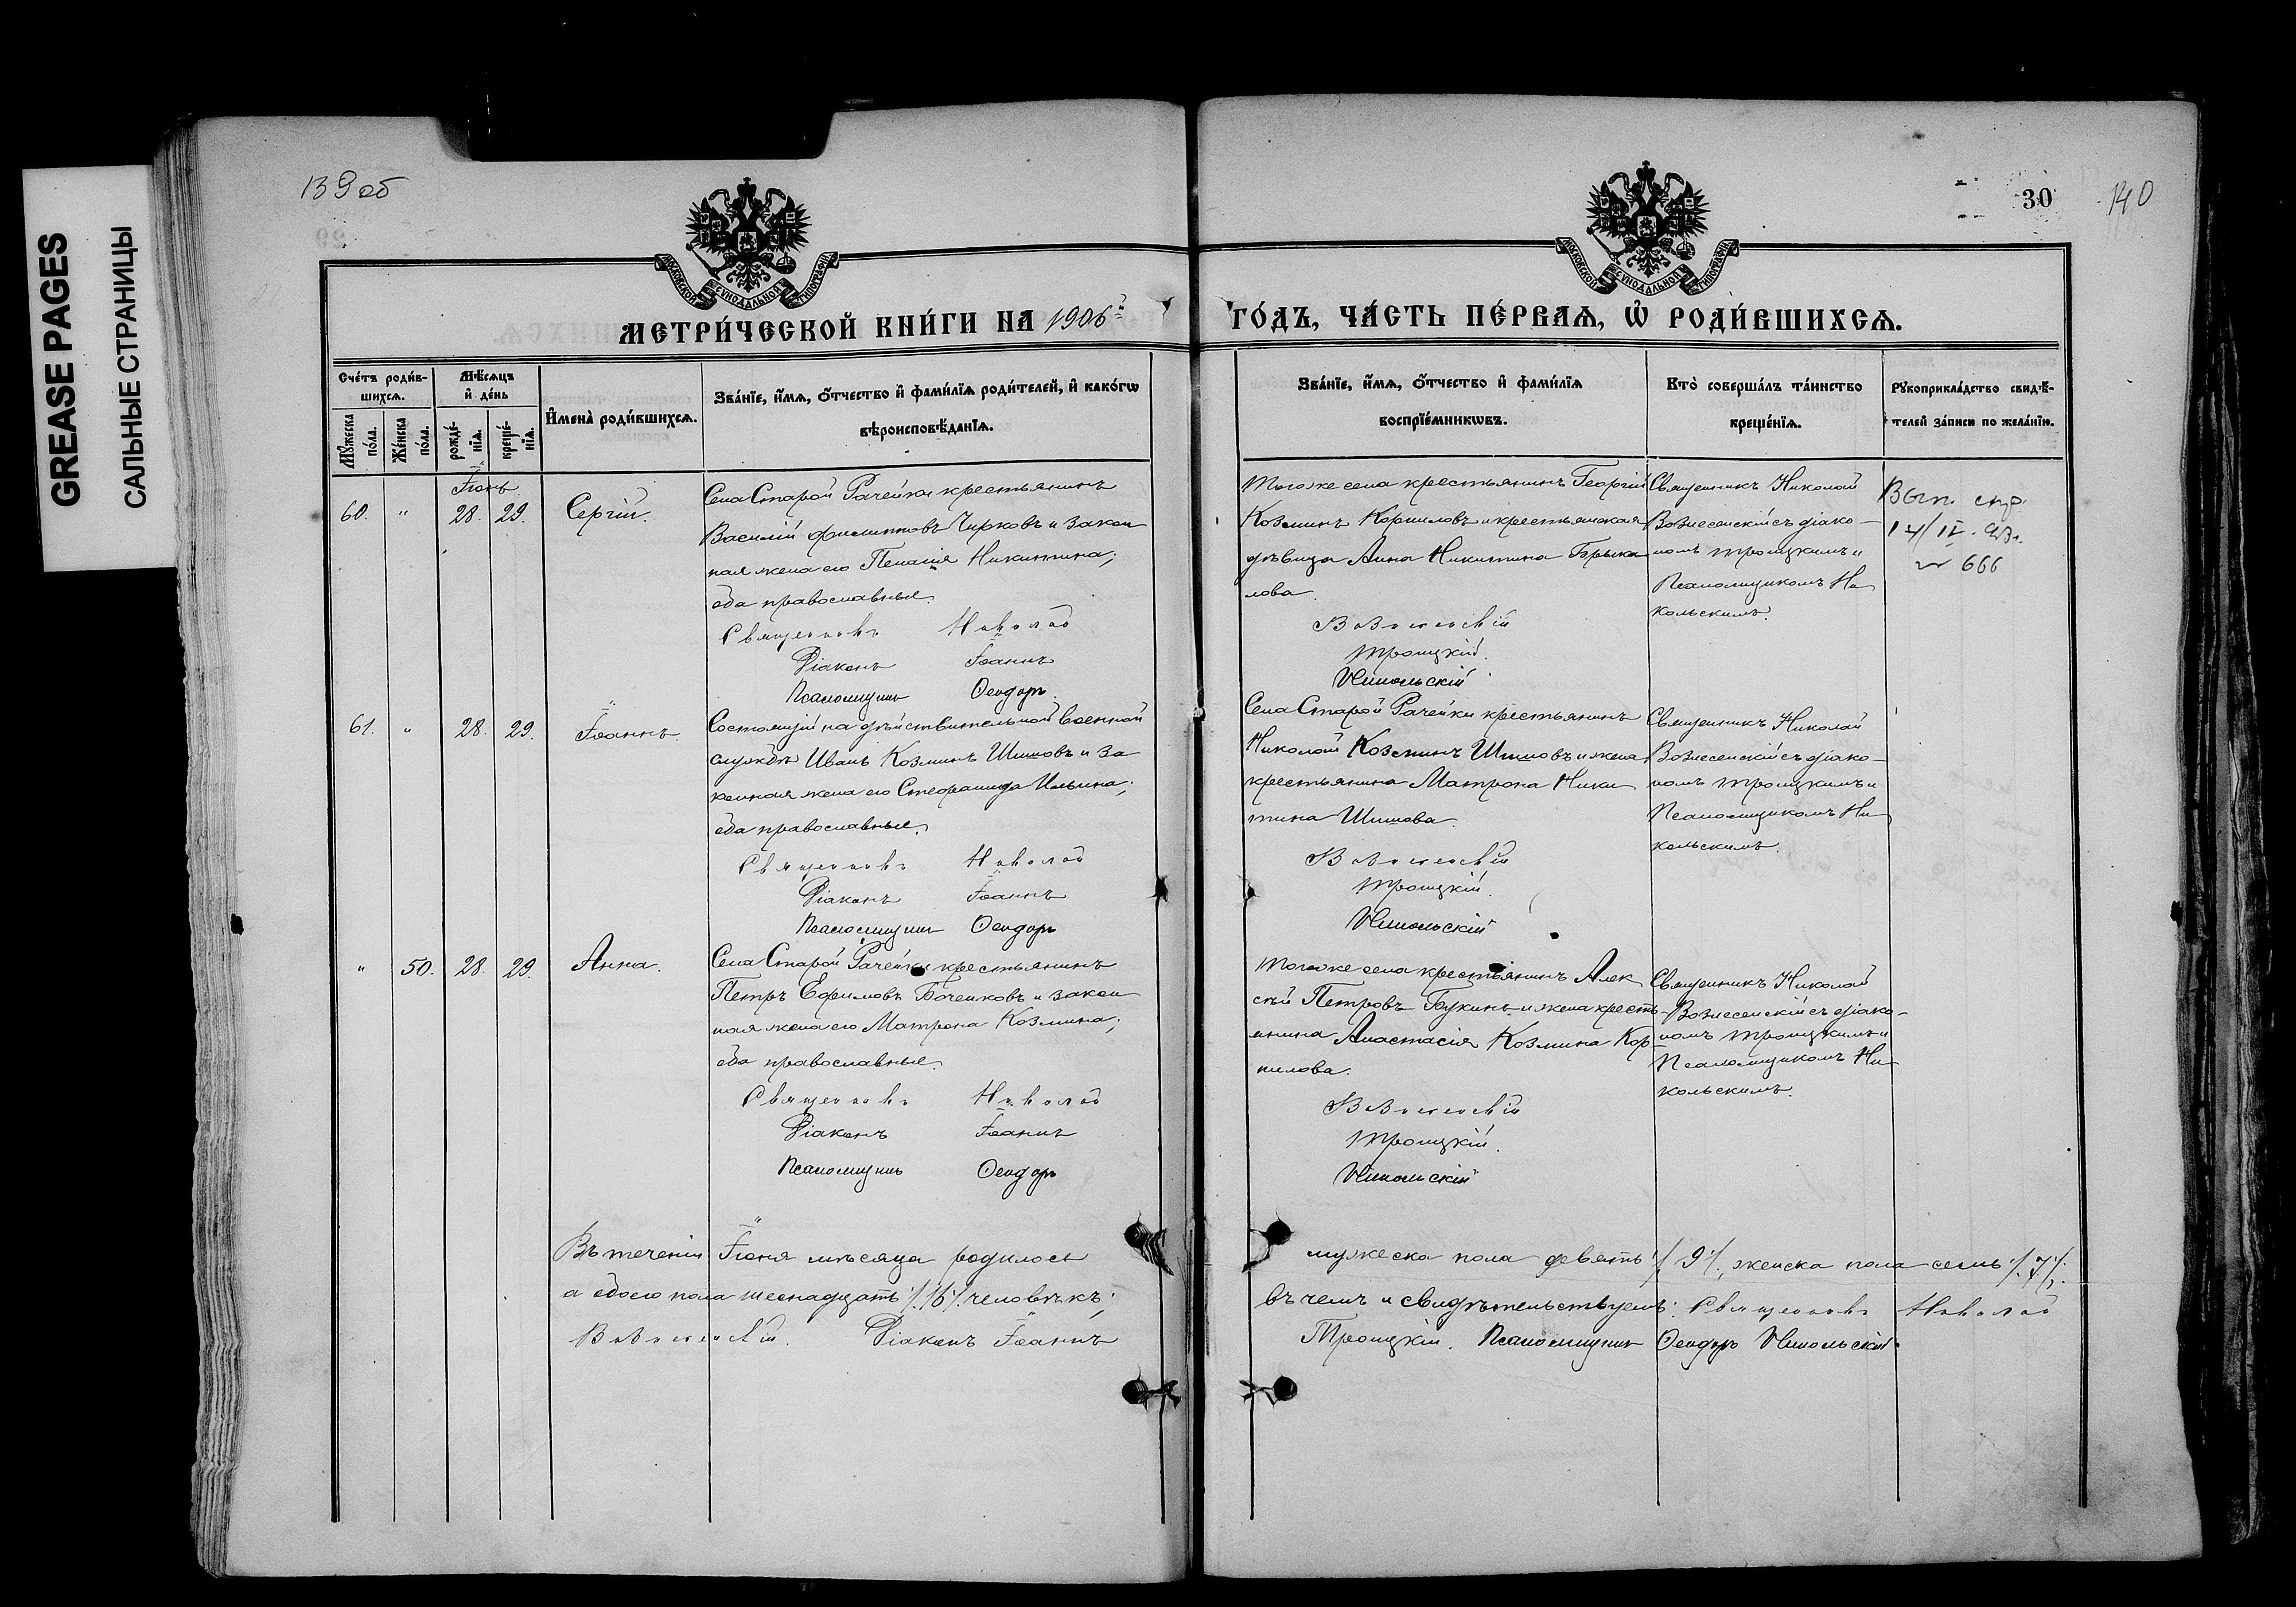 GREASE PAGES
САЛЬНЫЕ СТРАНИЦЫ
139 об
30
140
МОСКОВСКОЙ СѴНОДАЛЬНОЙ ТИПОГРАФІИ
МОСКОВСКОЙ СѴНОДАЛЬНОЙ ТИПОГРАФІИ
МЕТРИ́ЧЕСКОЙ КНИ́ГИ НА 1906й ГО́ДЪ, ЧА́СТЬ ПЕ́РВАѦ, Ѡ҆ РОДИ́ВШИХСѦ.
Сче́тъ роди́в-
шихсѧ.
Мꙋ́жеска по́ла.
Же́нска по́ла.
Мѣ́сѧцъ
и҆ де́нь
рожде́-
нїѧ.
креще́-
нїѧ.
И҆мена̀ роди́вшихсѧ.
Зва́нїе, и҆́мѧ, ѻ҆́тчество и҆ фами́лїѧ роди́телей, и҆ како́гѡ
вѣроисповѣ́данїѧ.
Зва́нїе, и҆́мѧ, ѻ҆́тчество и҆ фами́лїѧ
воспрїе́мникѡвъ.
Кто̀ соверша́лъ та́инство
креще́нїѧ.
Рꙋкоприкла́дство свидѣ́-
телей за́писи по жела́нїю.
Іюнь
60. " 28. 29. Сергій.
Села Старой Рачейки крестьянинъ
Василій Филипповъ Чирковъ и закон
ная жена его Пелагія Никитина;
оба православные.
Священникъ Николай
Діаконъ Іоаннъ
Псаломщикъ Ѳеодоръ
Тогоже села крестьянинъ Георгій
Козминъ Корниловъ и крестьянская
дѣвица Анна Никитина
лова.
Вознесенскій
Троицкій.
Никольскій
Священникъ Николай
Вознесенскій съ діако-
номъ Троицкимъ и
Псаломщикомъ Ни
кольскимъ.
666
61. " 28. 29. Іоаннъ.
Состоящій на дѣйствительной военной
службѣ Иванъ Козминъ Шишовъ и за
конная жена его Стефанида Ильина;
оба православные.
Священникъ Николай
Діаконъ Іоаннъ
Псаломщикъ Ѳеодоръ
Села Старой Рачейки крестьянинъ
Николай Козминъ Шишовъ и жена
крестьянина Матрона Ники
тина Шишова.
Вознесенскій
Троицкій.
Никольскій
Священникъ Николай
Вознесенскій съ діако-
номъ Троицкимъ и
Псаломщикомъ Ни
кольскимъ.
" 50. 28. 29. Анна.
Села Старой Рачейки крестьянинъ
Петръ Ефимовъ Боченковъ и закон
ная жена его Матрона Козмина;
оба православные.
Священникъ Николай
Діаконъ Іоаннъ
Псаломщикъ Ѳеодоръ
Тогоже села крестьянинъ Алек
сѣй Петровъ Букинъ и жена кресть-
янина Анастасія Козмина Кор
нилова.
Вознесенскій
Троицкій.
Никольскій
Священникъ Николай
Вознесенскій съ діако-
номъ Троицкимъ и
Псаломщикомъ Ни
кольскимъ.
Въ теченіи Іюня мѣсяца родилось мужеска пола девять /. 9 /., женска пола семь /. 7 /.
а обоего пола шеснадцать /. 16 /. человѣкъ; въ чемъ и свидѣтельствуемъ: Священникъ Николай
Вознесенскій. Діаконъ Іоаннъ Троицкій. Псаломщикъ Ѳеодоръ Никольскій.